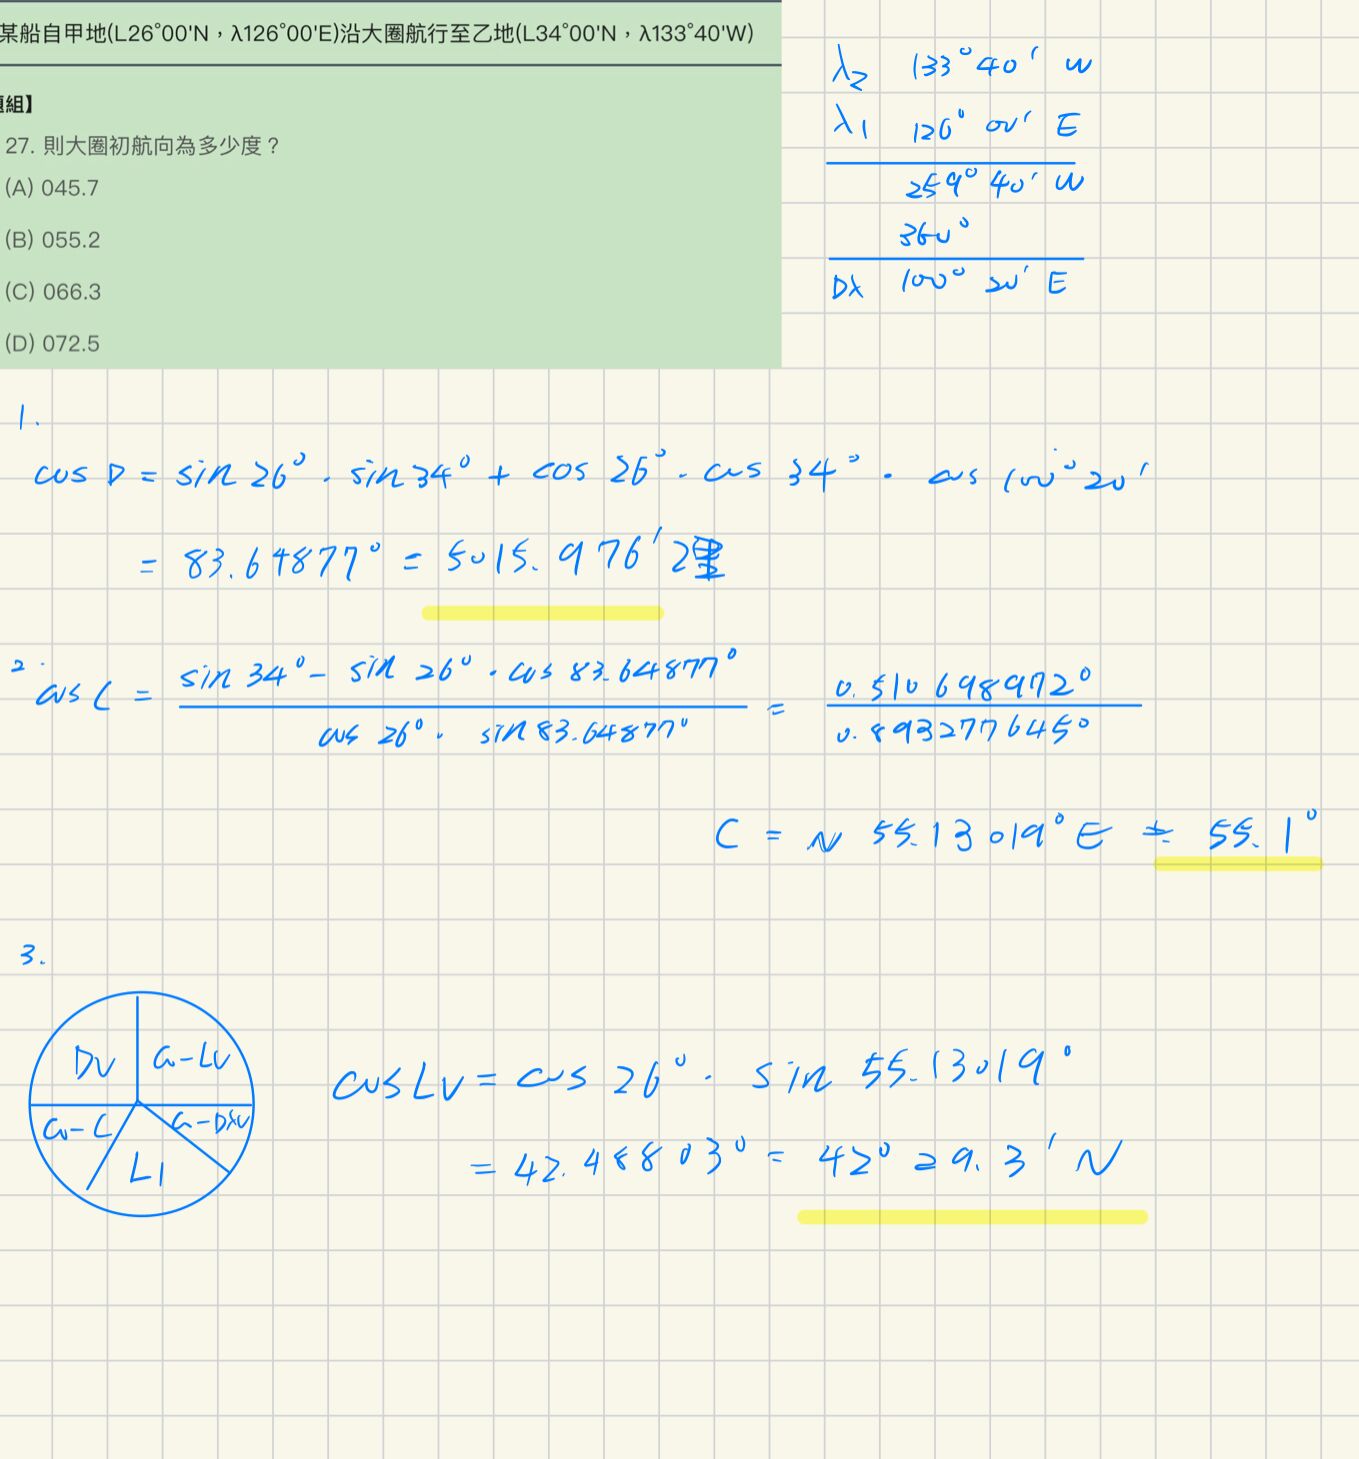 某船自甲地(L26°00'N，λ126°00'E)沿大圈航行至乙地(L34°00'N，λ133°40'W)
題組】
27. 則大圈初航向為多少度？
(A) 045.7
(B) 055.2
(C) 066.3
(D) 072.5
λ2 133°40' W
λ1 126° 00' E
259° 40' W
360°
Dλ 100° 20' E
1.
cos D = sin 26° · sin 34° + cos 26° · cos 34° · cos 100° 20'
= 83.64877° = 5015.976' 浬
2.
cos C = sin 34° - sin 26° · cos 83.64877° / cos 26° · sin 83.64877° = 0.510698972° / 0.8932776450
C = N 55.13019° E ≒ 55.1°
3.
Dv co-Lv
co-C co-Dλv
L1
cos Lv = cos 26° · sin 55.13019°
= 42.48803° = 42° 29.3' N